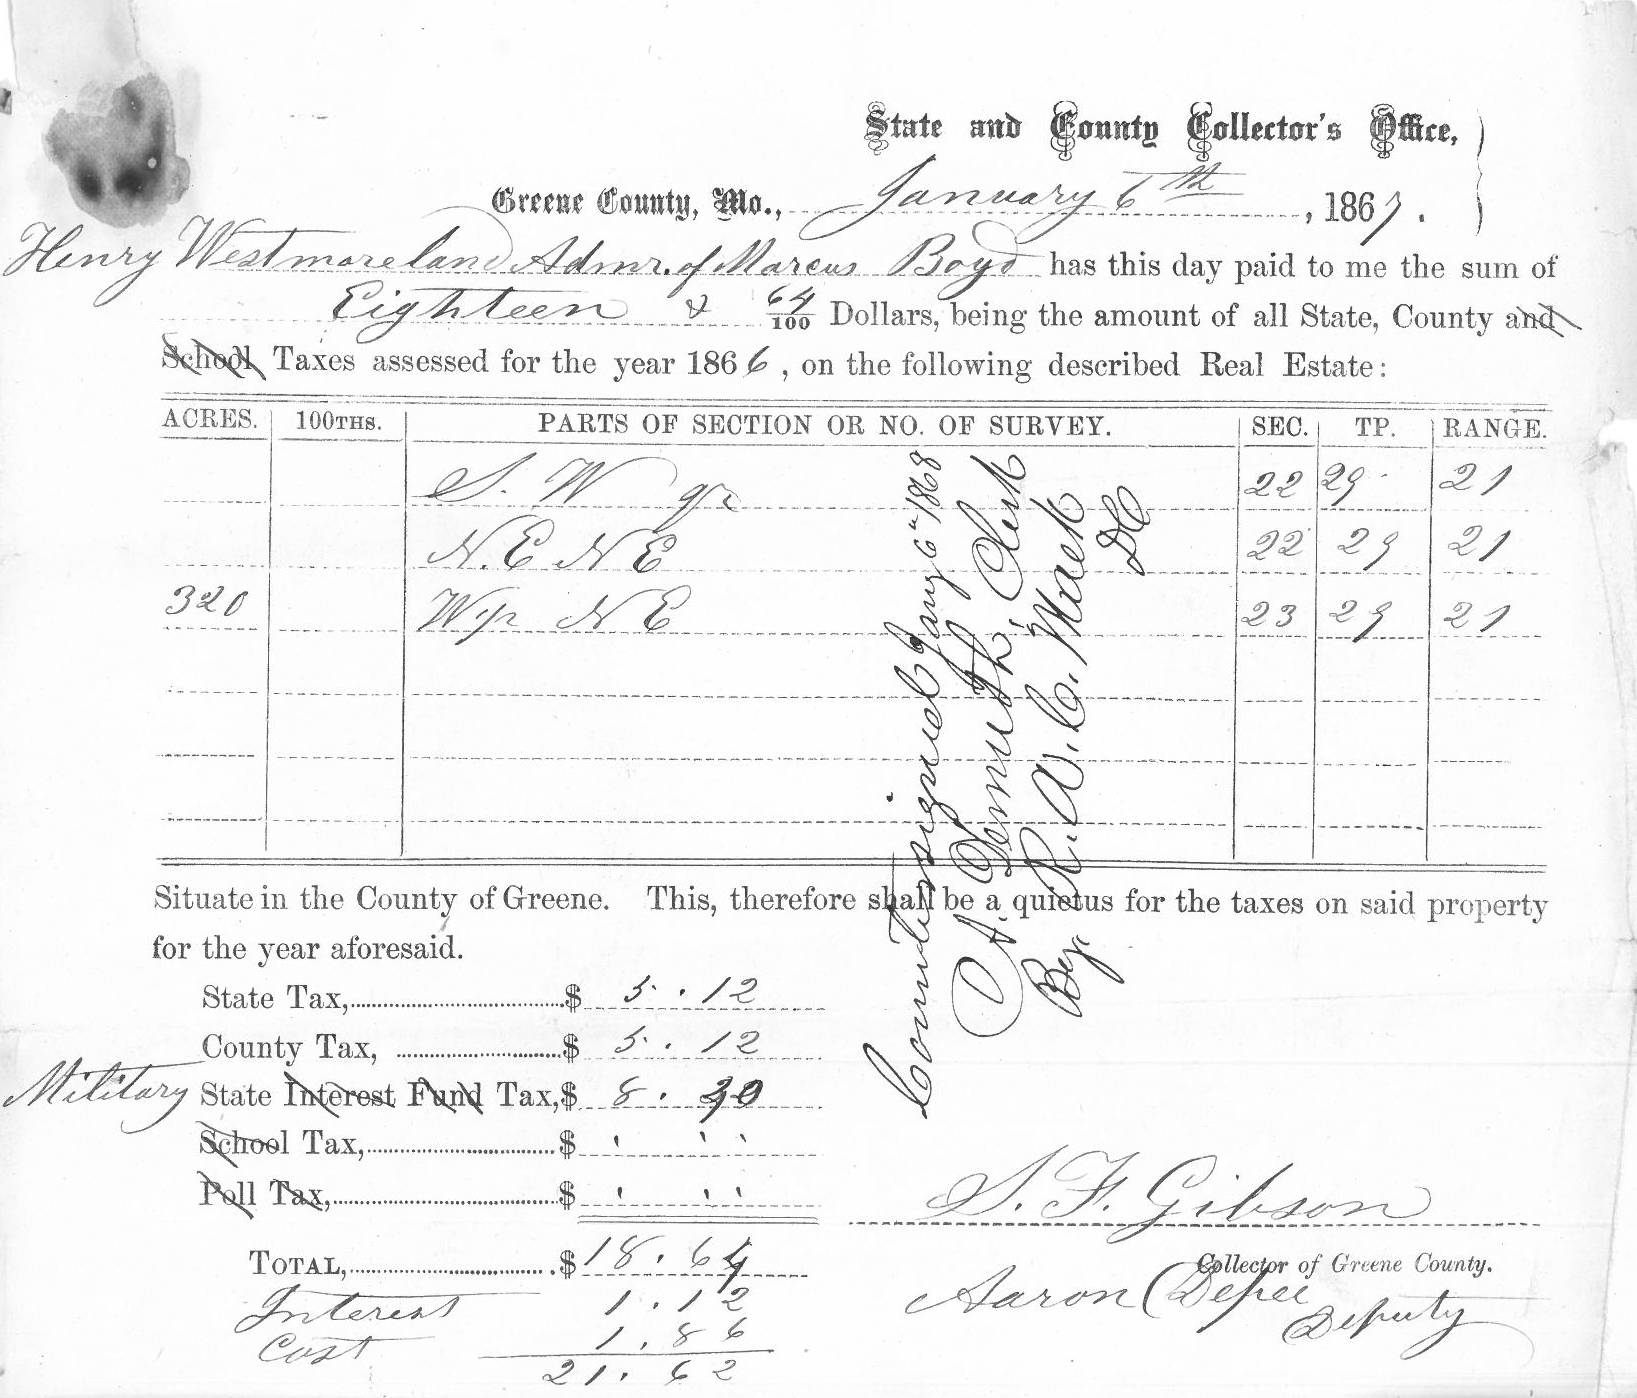 State and County Collector's Office,
Greene County, Mo., January 6th, 1867.
Henry Westmoreland Admr. of Marcus Boyd has this day paid to me the sum of
Eighteen & 64/100 Dollars, being the amount of all State, County and
School Taxes assessed for the year 1866, on the following described Real Estate:
ACRES. 100THS. PARTS OF SECTION OR NO. OF SURVEY. SEC. TP. RANGE.
S. W qr 22 29 21
N.E N E 22 29 21
320 N E 23 29 21
Situate in the County of Greene. This, therefore shall be a quietus for the taxes on said property
for the year aforesaid.
State Tax, $ 5.12
County Tax, $ 5.12
Military State Interest Fund Tax, $ 8.
School Tax, $
Poll Tax, $
TOTAL, $ 18.64
Interest 1.12
Cost 1.86
21.62
S. F. Gibson
Collector of Greene County.
Aaron Depee
Deputy
Countersigned Jany 6th 1868
A. Demuth, Clerk
By. R. A. C. Mack
DC